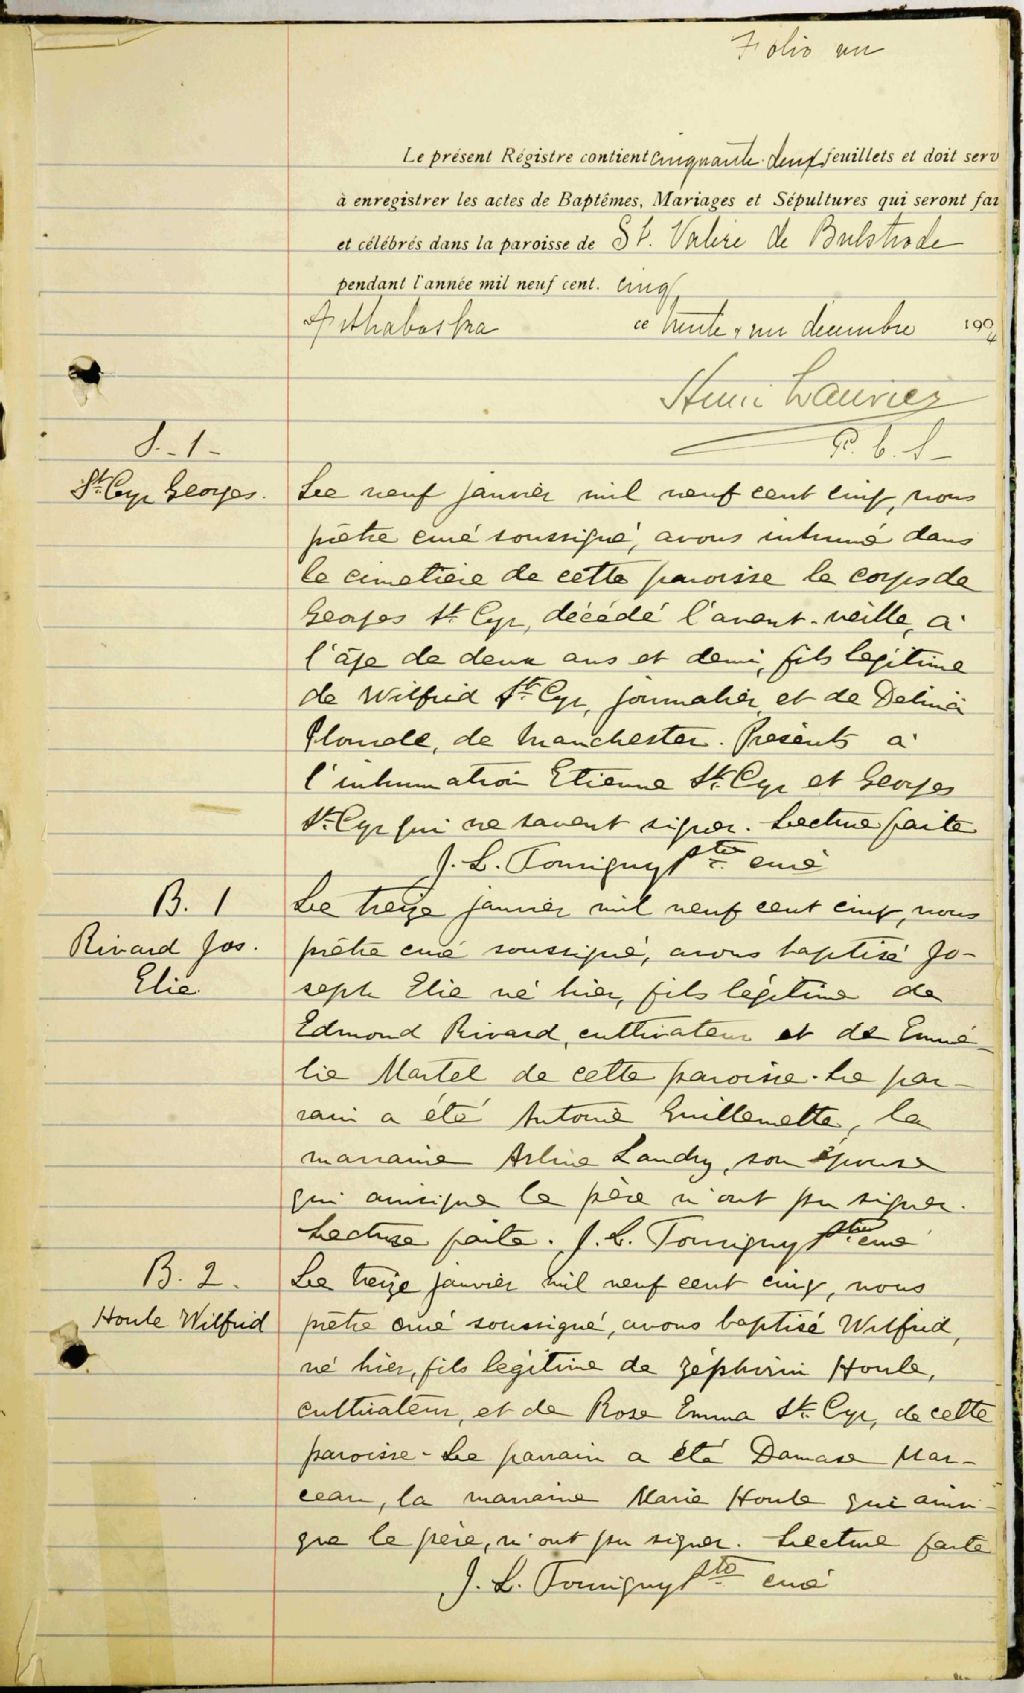 Folio un
Le présent Régistre contient cinquante-deux feuillets et doit serv
à enregistrer les actes de Baptêmes, Mariages et Sépultures qui seront fai
et célébrés dans la paroisse de St. Valère de Bulstrode
pendant l'année mil neuf cent. cinq
Arthabaska ce trente & un décembre 1904
Henri Laurier
P. C. S-
S.-1-
St. Cyr Georges.
Le neuf janvier mil neuf cent cinq, nous
prêtre curé soussigné, avons inhumé dans
le cimetière de cette paroisse le corps de
Georges St. Cyr, décédé l'avant-veille, à
l'âge de deux ans et demi, fils légitime
de Wilfrid St. Cyr, journalier, et de Delima
Plourde, de Manchester. Présents à
l'inhumation Etienne St. Cyr et Georges
St. Cyr qui ne savent signer. Lecture faite
J. L. Tourigny Ptre curé
B. 1
Rivard Jos.
Elie
Le treize janvier mil neuf cent cinq, nous
prêtre curé soussigné, avons baptisé Jo-
seph Elie né hier, fils légitime de
Edmond Rivard, cultivateur et de Emmé-
lie Martel de cette paroisse. Le par-
rain a été Antoine Guillemette, la
marraine Arline Landry, son épouse
qui ainsi que le père n'ont pu signer.
Lecture faite. J. L. Tourigny Ptre curé
B. 2.
Houle Wilfrid
Le treize janvier mil neuf cent cinq, nous
prêtre curé soussigné, avons baptisé Wilfrid,
né hier, fils légitime de Zéphirin Houle,
cultivateur, et de Rose Emma St. Cyr, de cette
paroisse. Le parrain a été Damase Mar-
ceau, la marraine Marie Houle qui ainsi
que le père, n'ont pu signer. Lecture faite
J. L. Tourigny Ptre curé